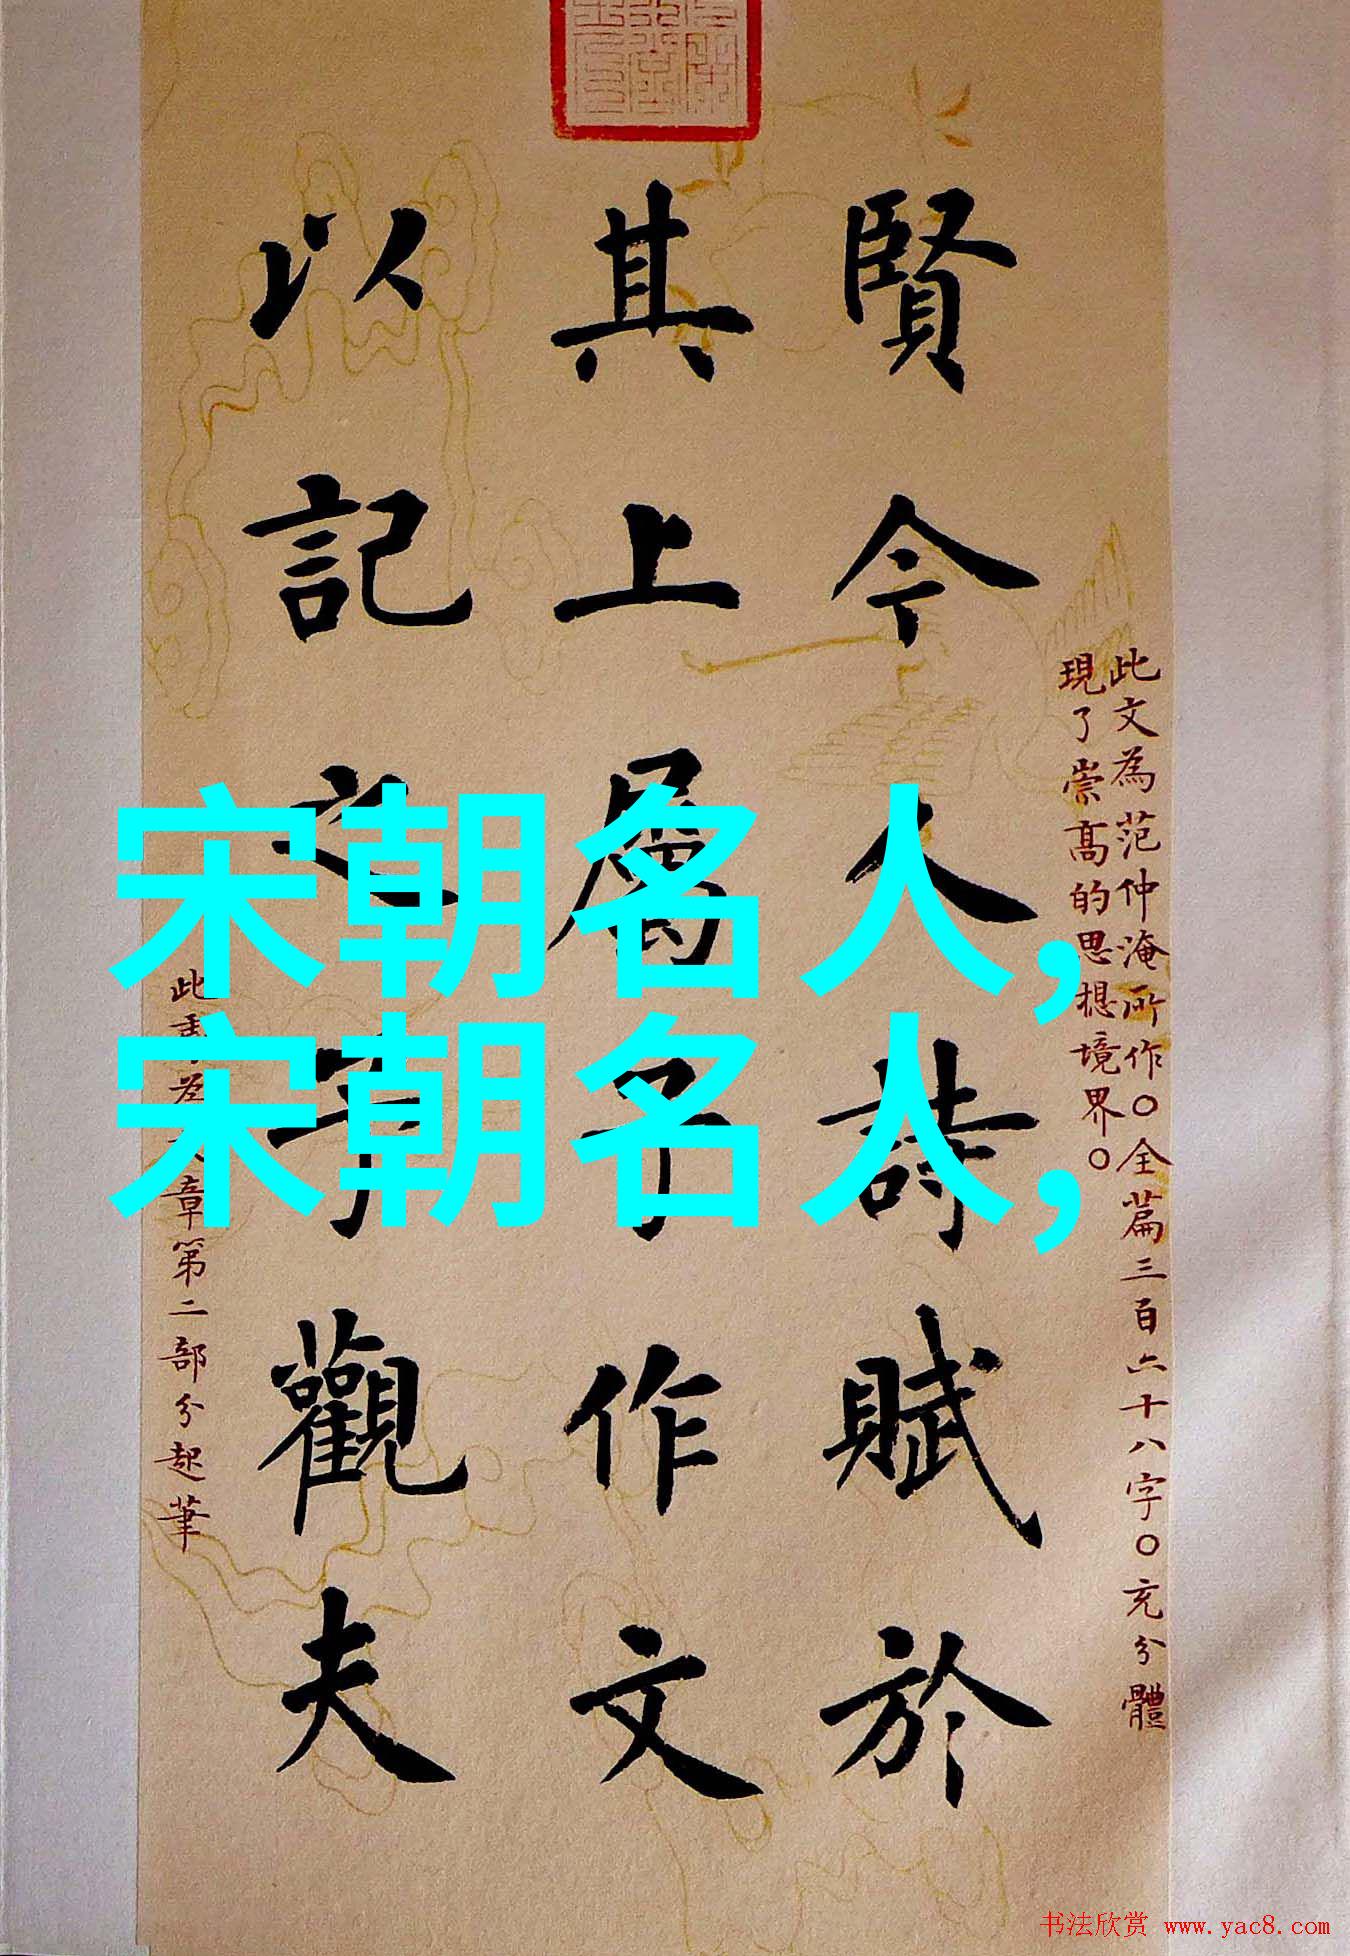 賢今人詩賦於
其上屬予作文
以記之予觀夫
此文為范仲淹所作○全篇三百六十八字○充分體
現了崇高的思想境界○
此為章第二部分起筆
宋朝名人,
宋朝名人,
书法欣赏 www.yac8.com